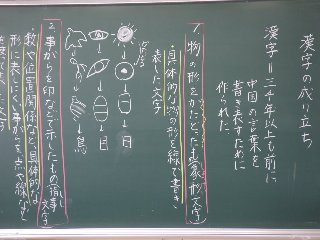 漢字の成り立ち
漢字=三千年以上も前に
中国の言葉を
書き表すために
作られた。
1.物の形をかたどった字(象形文字)
・具体的な物の形を線で書き
表した文字
日
目
鳥
2.事がらを印などで示したもの(指事文字)
・数や位置関係など、具体的な
形に表しにくい事がらを点や線など